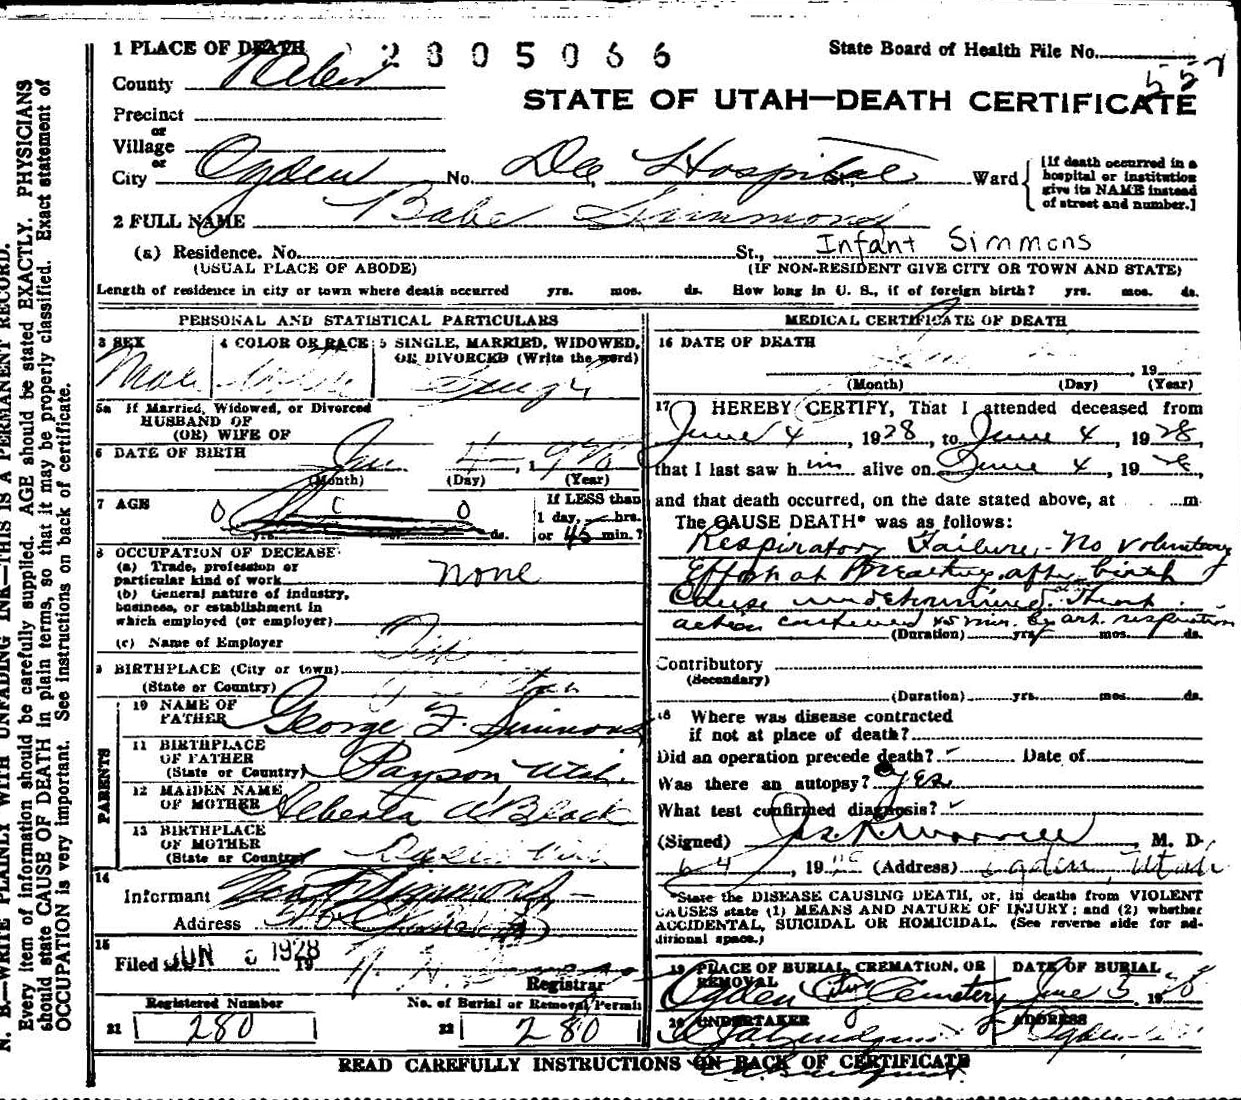 1 PLACE OF DEATH 2805066 State Board of Health File No.
County Weber
557
STATE OF UTAH—DEATH CERTIFICATE
Precinct
or
Village
or
City Ogden No. Dee Hospital St., Ward
[If death occurred in a hospital or institution give its NAME instead of street and number.]
2 FULL NAME Babe Simmons
Infant Simmons
(a) Residence. No. St.,
(USUAL PLACE OF ABODE) (IF NON-RESIDENT GIVE CITY OR TOWN AND STATE)
Length of residence in city or town where death occurred yrs. mos. ds. How long in U. S., if of foreign birth? yrs. mos. ds.
PERSONAL AND STATISTICAL PARTICULARS
3 SEX 4 COLOR OR RACE 5 SINGLE, MARRIED, WIDOWED,
OR DIVORCED (Write the word)
Male White Single
5a If Married, Widowed, or Divorced
HUSBAND OF
(OR) WIFE OF
6 DATE OF BIRTH June 4, 1928
(Month) (Day) (Year)
7 AGE 0 0 0 If LESS than
1 day, hrs.
yrs. ds. or 45 min.?
8 OCCUPATION OF DECEASED
(a) Trade, profession or
particular kind of work none
(b) General nature of industry,
business, or establishment in
which employed (or employer)
(c) Name of Employer
9 BIRTHPLACE (City or town)
(State or Country)
PARENTS
10 NAME OF
FATHER George F. Simmons
11 BIRTHPLACE
OF FATHER
(State or Country) Payson Utah.
12 MAIDEN NAME
OF MOTHER Alberta A Black
13 BIRTHPLACE
OF MOTHER
(State or Country) Ogden Utah
14
Informant Simmons
Address
15
Filed JUN 1928 19
Registrar
Registered Number No. of Burial or Removal Permit
21 280 22 280
MEDICAL CERTIFICATE OF DEATH
16 DATE OF DEATH
June
, 19
(Month) (Day) (Year)
17 I HEREBY CERTIFY, That I attended deceased from
June 4, 1928, to June 4, 1928,
that I last saw him alive on June 4, 1928
and that death occurred, on the date stated above, at m
The CAUSE DEATH* was as follows:
Respiratory Failure - No voluntary
Effort at Breathing after birth
Cause undetermined. Heart
action continued 45 min. by art. respiration
(Duration) yrs. mos. ds.
Contributory
(Secondary)
(Duration) yrs. mos. ds.
18 Where was disease contracted
if not at place of death?
Did an operation precede death? Date of
Was there an autopsy? yes
What test confirmed diagnosis?
(Signed) M. D.
6 4, 19 (Address) Ogden, Utah
*State the DISEASE CAUSING DEATH, or, in deaths from VIOLENT
CAUSES state (1) MEANS AND NATURE OF INJURY; and (2) whether
ACCIDENTAL, SUICIDAL OR HOMICIDAL. (See reverse side for ad-
ditional space.)
19 PLACE OF BURIAL, CREMATION, OR
REMOVAL
DATE OF BURIAL
Ogden City Cemetery June 5, 1928
20 UNDERTAKER ADDRESS
Ogden
READ CAREFULLY INSTRUCTIONS ON BACK OF CERTIFICATE
N. B.—WRITE PLAINLY WITH UNFADING INK—THIS IS A PERMANENT RECORD.
Every item of information should be carefully supplied. AGE should be stated EXACTLY. PHYSICIANS
should state CAUSE OF DEATH in plain terms, so that it may be properly classified. Exact statement of
OCCUPATION is very important. See instructions on back of certificate.